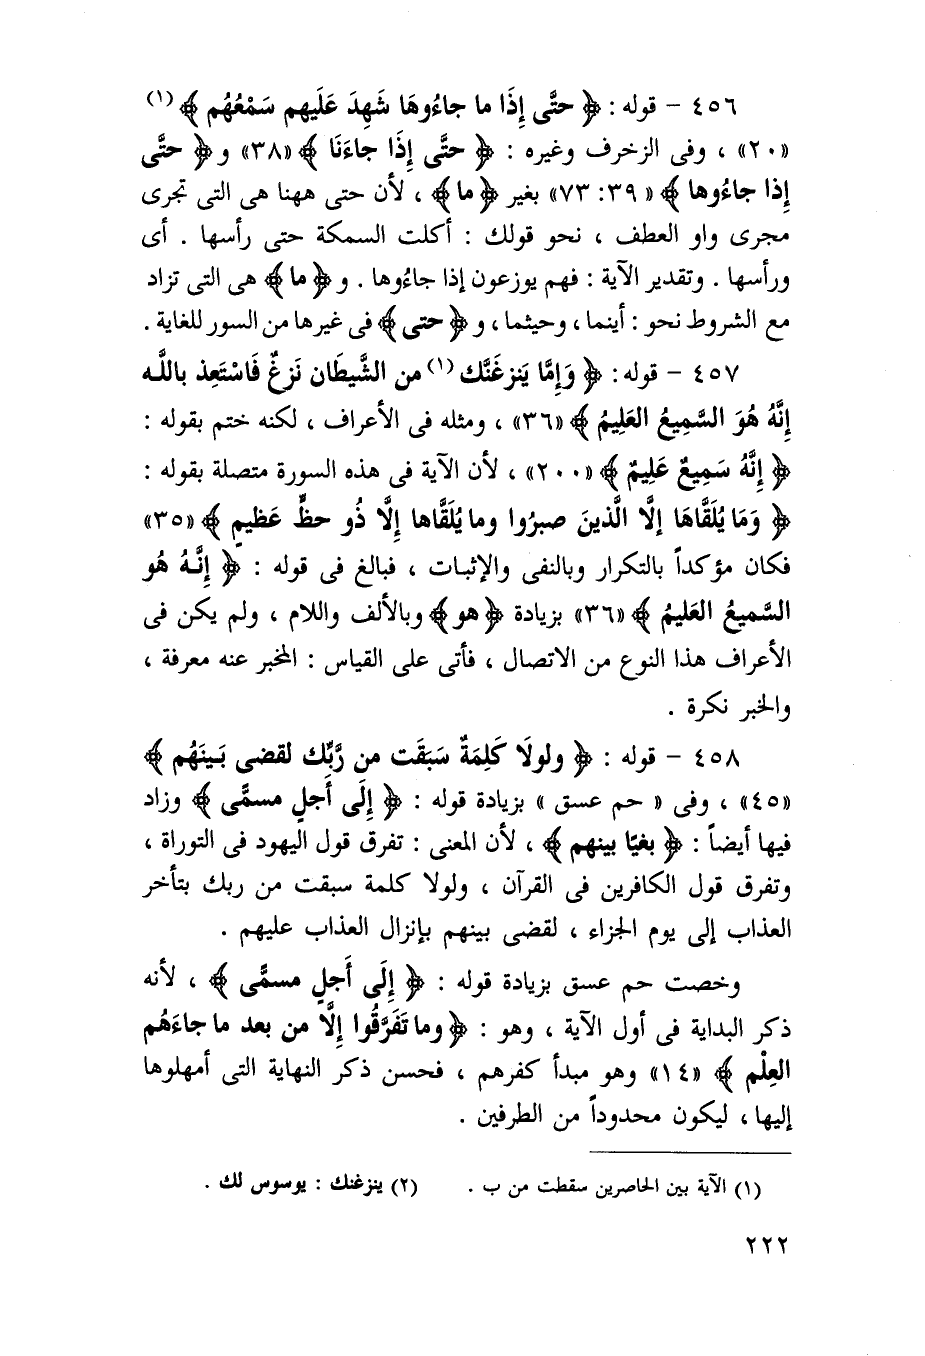 ٤٥٦ – قوله : ﴿ حتَّى إِذَا ما جاءُوهَا شَهِدَ عَلَيهم سَمْعُهُم ﴾ (١)
«٢٠» ، وفى الزخرف وغيره : ﴿ حتَّى إِذَا جاءَنَا ﴾ «٣٨» و ﴿ حتَّى
إِذا جاءُوها ﴾ «٣٩ : ٧٣» بغير ﴿ ما ﴾ ، لأن حتى ههنا هى التى تجرى
مجرى واو العطف ، نحو قولك : أكلت السمكة حتى رأسها . أى
ورأسها . وتقدير الآية : فهم يوزعون إذا جاءُوها . و ﴿ ما ﴾ هى التى تزاد
مع الشروط نحو : أينما ، وحيثما ، و ﴿ حتى ﴾ فى غيرها من السور للغاية .
٤٥٧ – قوله : ﴿ وَإِمَّا يَنزغَنَّك (١) من الشَّيطَان نَزغٌ فَاسْتَعِذ باللَّه
إِنَّهُ هُوَ السَّمِيعُ العَلِيمُ ﴾ «٣٦» ، ومثله فى الأعراف ، لكنه ختم بقوله :
﴿ إِنَّهُ سَمِيعٌ عَلِيمٌ ﴾ «٢٠٠» ، لأن الآية فى هذه السورة متصلة بقوله :
﴿ وَمَا يُلَقَّاهَا إلَّا الَّذينَ صبرُوا وما يُلَقَّاها إِلَّا ذُو حظٍّ عَظيمٍ ﴾ «٣٥»
فكان مؤكداً بالتكرار وبالنفى والإثبات ، فبالغ فى قوله : ﴿ إِنَّهُ هُو
السَّميعُ العَليمُ ﴾ «٣٦» بزيادة ﴿ هو ﴾ وبالألف واللام ، ولم يكن فى
الأعراف هذا النوع من الاتصال ، فأتى على القياس : المخبر عنه معرفة ،
والخبر نكرة .
٤٥٨ – قوله : ﴿ ولولَا كَلِمَةٌ سبَقَت من رَّبِّك لقضى بَينَهُم ﴾
«٤٥» ، وفى « حم عسق » بزيادة قوله : ﴿ إِلَى أَجلٍ مسمًّى ﴾ وزاد
فيها أيضاً : ﴿ بغيًا بينهم ﴾ ، لأن المعنى : تفرق قول اليهود فى التوراة ،
وتفرق قول الكافرين فى القرآن ، ولولا كلمة سبقت من ربك بتأخر
العذاب إلى يوم الجزاء ، لقضى بينهم بإنزال العذاب عليهم .
وخصت حم عسق بزيادة قوله : ﴿ إِلَى أَجلٍ مسمًّى ﴾ ، لأنه
ذكر البداية فى أول الآية ، وهو : ﴿ وما تَفَرَّقُوا إلَّا من بعد ما جاءَهُم
العِلْم ﴾ «١٤» وهو مبدأ كفرهم ، فحسن ذكر النهاية التى أمهلوها
إليها ، ليكون محدوداً من الطرفين .
(١) الآية بين الحاصرين سقطت من ب . (٢) ينزغنك : يوسوس لك .
٢٢٢